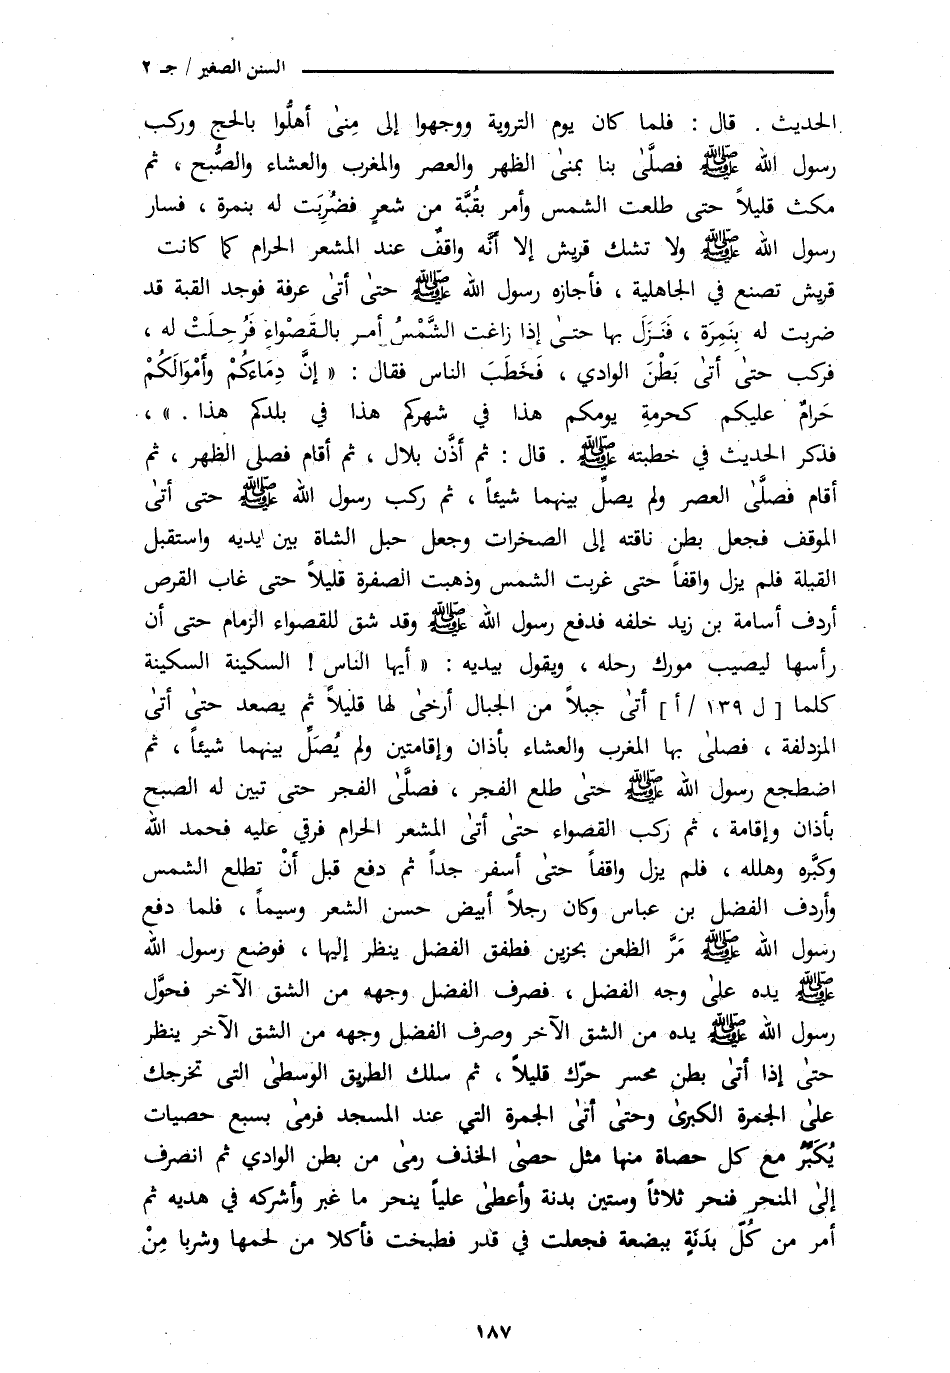 السنن الصغير / جـ ٢
الحديث . قال : فلما كان يوم التروية ووجهوا إلى مِنىٰ أهلُّوا بالحج وركب
رسول الله ﷺ فصلَّىٰ بنا بمنىٰ الظهر والعصر والمغرب والعشاء والصُّبح ، ثم
مكث قليلاً حتى طلعت الشمس وأمر بقُبَّة من شعرٍ فضُرِبَت له بنمرة ، فسار
رسول الله ﷺ ولا تشك قريش إلا أنَّه واقفٌ عند المشعر الحرام كما كانت
قريش تصنع في الجاهلية ، فأجازه رسول الله ﷺ حتىٰ أتىٰ عرفة فوجد القبة قد
ضربت له بِنَمِرَة ، فَنَـزَل بها حتـىٰ إذا زاغت الشَّمْسُ أمـر بالـقَصْواءِ فَرُحِـلَتْ له ،
فركب حتىٰ أتىٰ بَطْنَ الوادي ، فَخَطَبَ الناس فقال : « إنَّ دِمَاءَكُمْ وأمْوَالَكُمْ
حَرامٌ عليكم كحرمةِ يومكم هذا في شهركم هذا في بلدكم هذا . » ،
فذكر الحديث في خطبته ﷺ . قال : ثم أذَّن بلال ، ثم أقام فصلى الظهر ، ثم
أقام فصلَّىٰ العصر ولم يصلِّ بينهما شيئاً ، ثم ركب رسول الله ﷺ حتى أتىٰ
الموقف فجعل بطن ناقته إلى الصخرات وجعل حبل الشاة بين يديه واستقبل
القبلة فلم يزل واقفاً حتى غربت الشمس وذهبت الصفرة قليلاً حتى غاب القرص
أردف أسامة بن زيد خلفه فدفع رسول الله ﷺ وقد شق للقصواء الزمام حتى أن
رأسها ليصيب مورك رحله ، ويقول بيديه : « أيها الناس ! السكينة السكينة
كلما [ ل ١٣٩ / أ ] أتىٰ جبلاً من الجبال أرخىٰ لها قليلاً ثم يصعد حتىٰ أتىٰ
المزدلفة ، فصلىٰ بها المغرب والعشاء بأذان وإقامتين ولم يُصَلِّ بينهما شيئاً ، ثم
اضطجع رسول الله ﷺ حتىٰ طلع الفجر ، فصلَّىٰ الفجر حتى تبين له الصبح
بأذان وإقامة ، ثم ركب القصواء حتىٰ أتىٰ المشعر الحرام فرقي عليه فحمد الله
وكبَّره وهلله ، فلم يزل واقفاً حتىٰ أسفر جداً ثم دفع قبل أنْ تطلع الشمس
وأردف الفضل بن عباس وكان رجلاً أبيض حسن الشعر وسيماً ، فلما دفع
رسول الله ﷺ مَرَّ الظعن بحزين فطفق الفضل ينظر إليها ، فوضع رسول الله
ﷺ يده علىٰ وجه الفضل ، فصرف الفضل وجهه من الشق الآخر فحوَّل
رسول الله ﷺ يده من الشق الآخر وصرف الفضل وجهه من الشق الآخر ينظر
حتىٰ إذا أتىٰ بطن محسر حرّك قليلاً ، ثم سلك الطريق الوسطىٰ التى تخرجك
علىٰ الجمرة الكبرىٰ وحتىٰ أتىٰ الجمرة التي عند المسجد فرمىٰ بسبع حصيات
يُكَبِّر مع كل حصاة منها مثل حصىٰ الخذف رمىٰ من بطن الوادي ثم انصرف
إلىٰ المنحر فنحر ثلاثاً وستين بدنة وأعطىٰ علياً ينحر ما غبر وأشركه في هديه ثم
أمر من كُلّ بدَنَةٍ ببضعة فجعلت في قدر فطبخت فأكلا من لحمها وشربا مِنْ
١٨٧